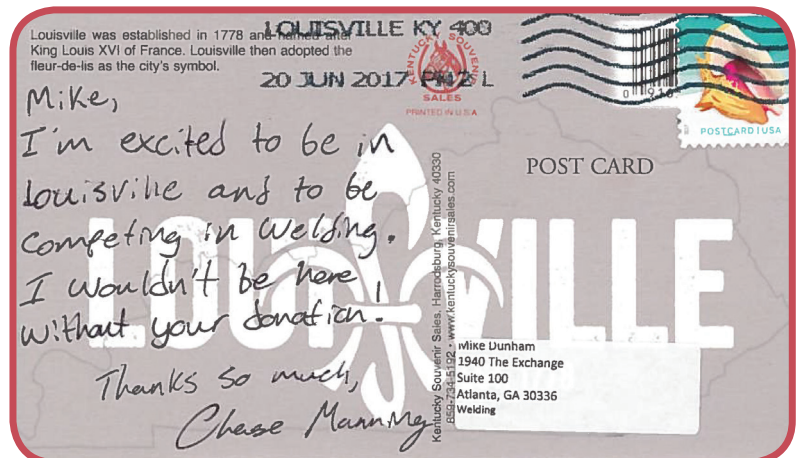 Louisville was established in 1778 and named after
King Louis XVI of France. Louisville then adopted the
fleur-de-lis as the city's symbol.
LOUISVILLE KY 400
20 JUN 2017 PM 2 L
KENTUCKY SOUVENIR
SALES
PRINTED IN U.S.A
POSTCARD | USA
Mike,
I'm excited to be in
Louisville and to be
competing in Welding.
I wouldn't be here
without your donation!
Thanks so much,
Chase Manning
Kentucky Souvenir Sales, Harrodsburg, Kentucky 40330
859-734-5192 • www.kentuckysouvenirsales.com
POST CARD
LOUISVILLE
Mike Dunham
1940 The Exchange
Suite 100
Atlanta, GA 30336
Welding